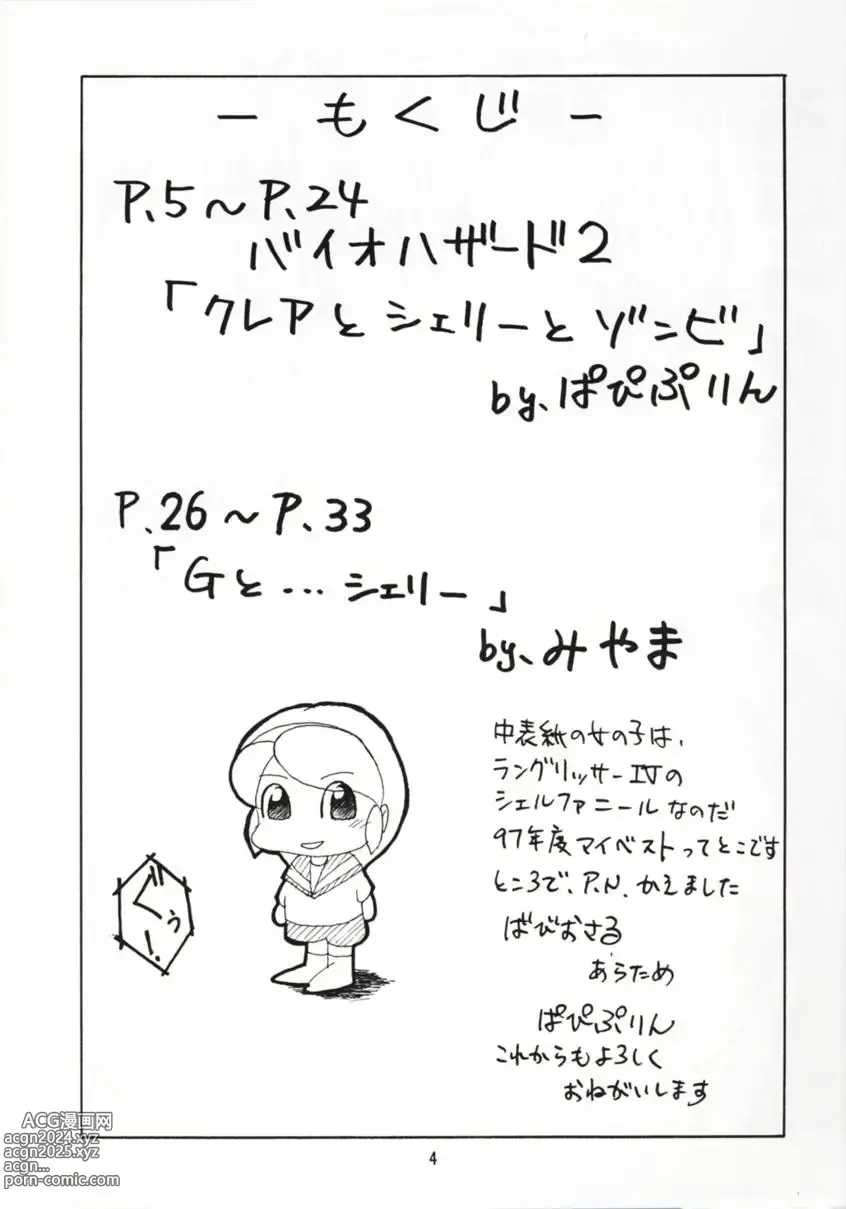 ー もくじ ー
P.5～P.24
バイオハザード2
「クレアとシェリーとゾンビ」
by.ぱぴぷりん
P.26～P.33
「Gと...シェリー」
by.みやま
中表紙の女の子は、
ラングリッサーIVの
シェルファニールなのだ
97年度マイベストってとこです
ところで、P.N.かえました
ばびおさる
あらため
ぱぴぷりん
これからもよろしく
おねがいします
ぐぅ!
ACG漫画网
acgn2024.xyz
acgn2025.xyz
acgn...
porn-comic.com
4